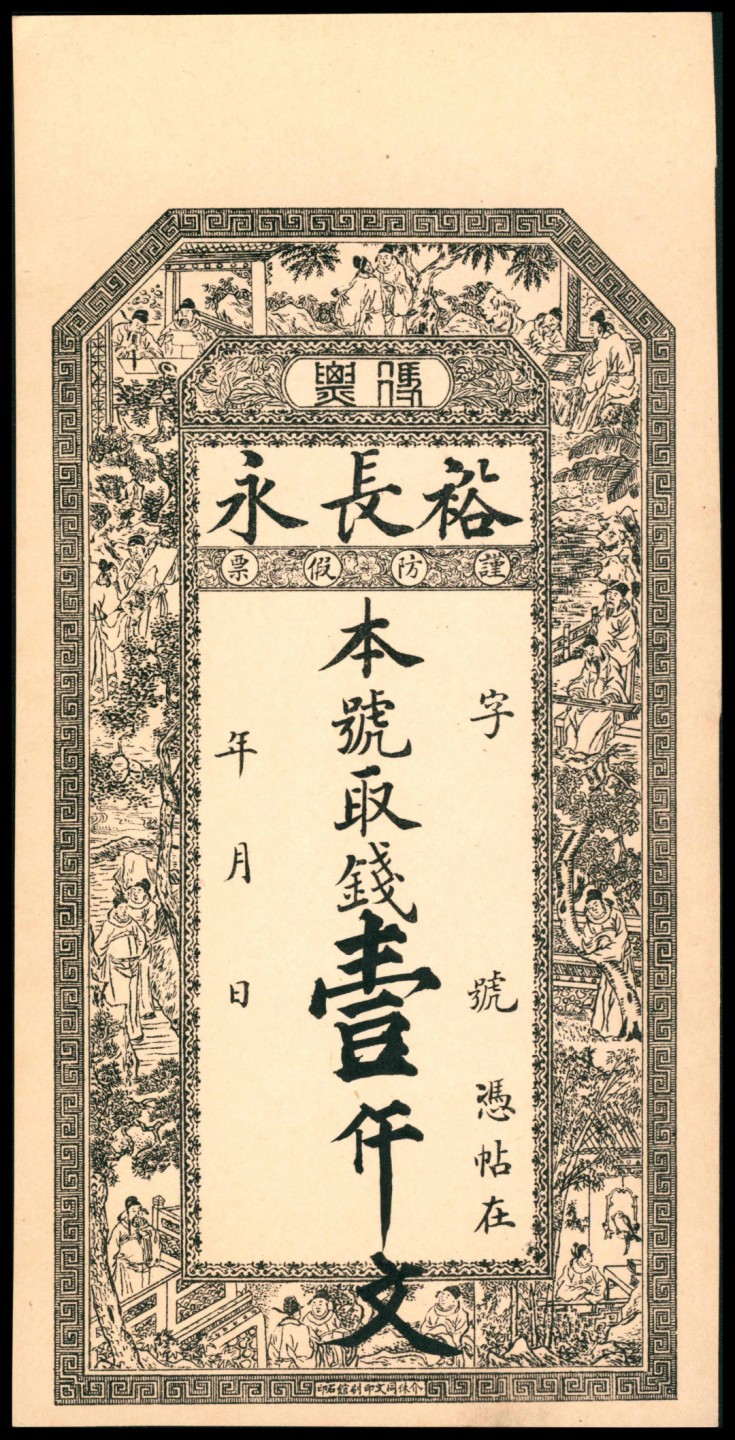 裕長永
謹防假票
字號憑帖在
本號取錢壹仟文
年月日
介休同文印刷館石印